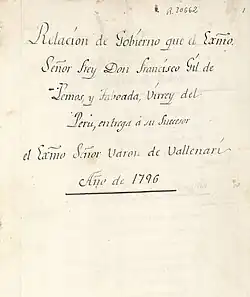 A.20662
1
Relacion de Gobierno que el Exmo.
Señor Frey Don Francisco Gil de
Lemos, y Taboada, Virrey del
Perú, entrega á su Sucesor
el Exmo Señor Varon de Vallenari
Año de 1796